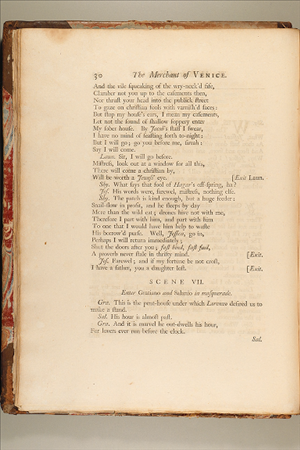 30 The Merchant of VENICE.
And the vile squeaking of the wry-neck'd fife,
Clamber not you up to the casements then,
Nor thrust your head into the publick street
To gaze on christian fools with varnish'd faces:
But stop my house's ears, I mean my casements,
Let not the sound of shallow foppery enter
My sober house. By Jacob's staff I swear,
I have no mind of feasting forth to-night:
But I will go; go you before me, sirrah:
Say I will come.
Laun. Sir, I will go before.
Mistress, look out at a window for all this,
There will come a christian by,
Will be worth a Jewess' eye. [Exit Laun.
Shy. What says that fool of Hagar's off-spring, ha?
Jes. His words were, farewel, mistress, nothing else.
Shy. The patch is kind enough, but a huge feeder;
Snail-slow in profit, and he sleeps by day
More than the wild cat; drones hive not with me,
Therefore I part with him, and part with him
To one that I would have him help to waste
His borrow'd purse. Well, Jessica, go in,
Perhaps I will return immediately;
Shut the doors after you; fast bind, fast find,
A proverb never stale in thrifty mind. [Exit.
Jes. Farewel; and if my fortune be not crost,
I have a father, you a daughter lost. [Exit.
SCENE VII.
Enter Gratiano and Salanio in masquerade.
Gra. This is the pent-house under which Lorenzo desired us to
make a stand.
Sal. His hour is almost past.
Gra. And it is marvel he out-dwells his hour,
For lovers ever run before the clock.
Sal.